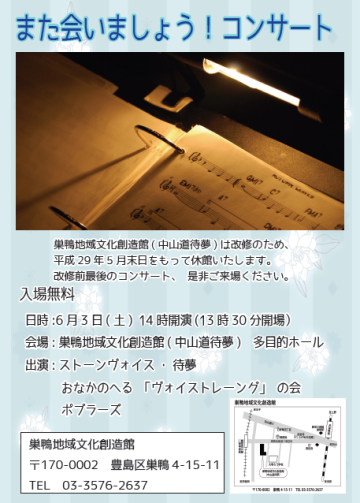 また会いましょう！コンサート
巣鴨地域文化創造館(中山道待夢)は改修のため、
平成29年5月末日をもって休館いたします。
改修前最後のコンサート、是非ご来場ください。
入場無料
日時:6月3日(土) 14時開演(13時30分開場)
会場:巣鴨地域文化創造館(中山道待夢) 多目的ホール
出演:ストーンヴォイス・待夢
おなかのへる「ヴォイストレーング」の会
ポプラーズ
巣鴨地域文化創造館
〒170-0002 豊島区巣鴨4-15-11
TEL 03-3576-2637
巣鴨地域文化創造館